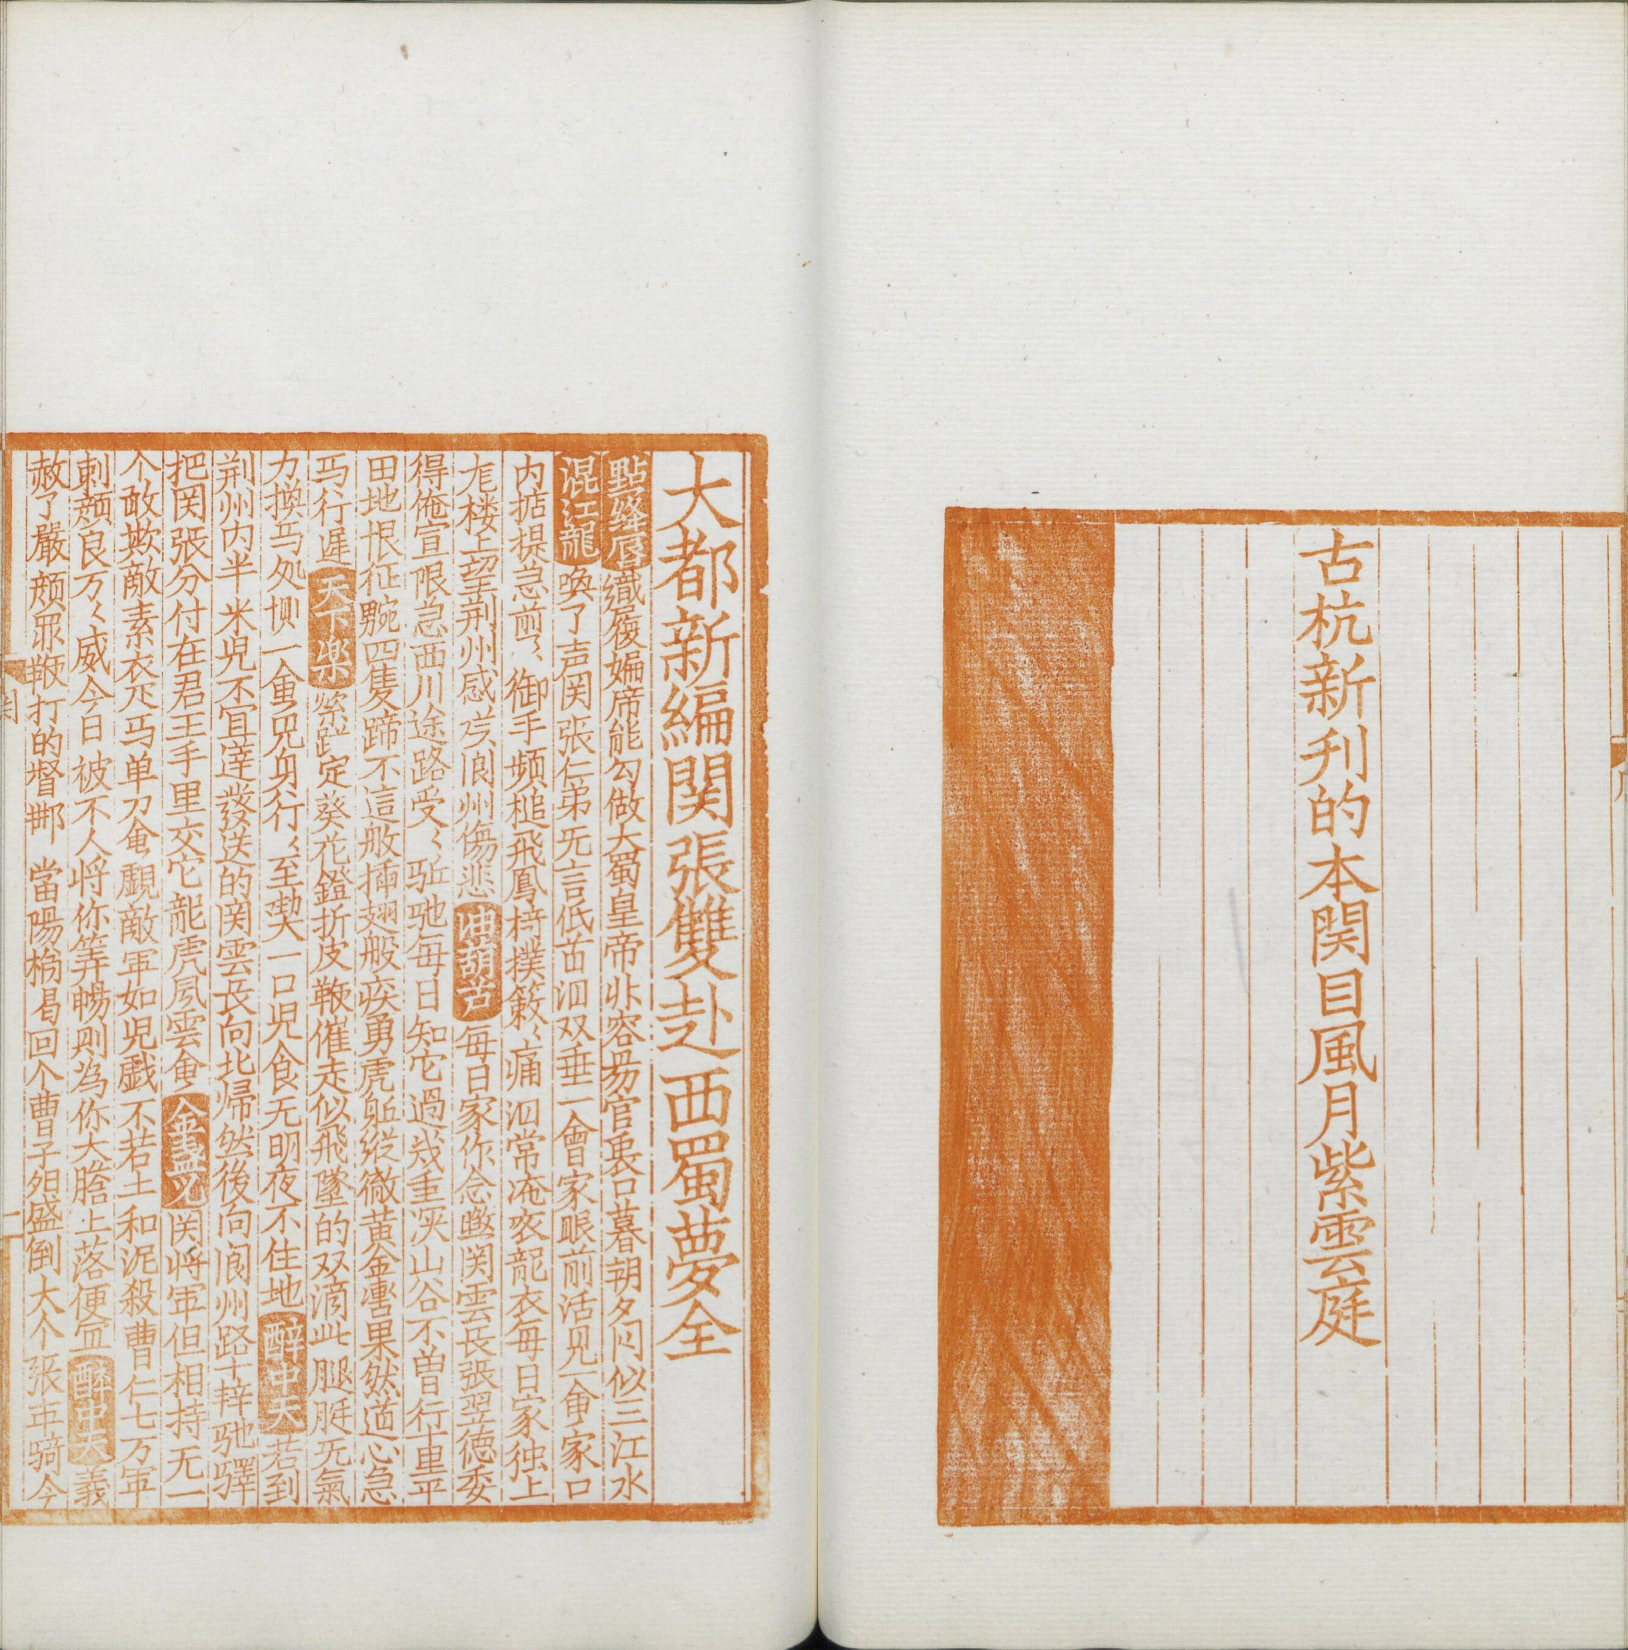 古杭新刋的本関目風月紫雲庭
大都新編関張雙赴西蜀夢全
點絳唇織履編席能勾做大蜀皇帝非容昜官裏口暮朝夕闷似三江水
混江龍喚了声関張仁弟旡言低首泪双垂一會家眼前活见一會家口
内掂提急前〻御手頻槌飛鳳椅撲簌〻痛泪常淹衮龍衣每日家独上
危楼上望荆州感叹阆州傷悲油葫芦每日家作念煞関雲長張翌德委
得俺宣限急西川途路受〻駈驰每日知它過幾重深山谷不曽行十里平
田地恨征䮓四隻蹄不這般插翅般疾勇虎躯縱徹黄金轡果然道心急
马行遲天下楽緊跐定葵花鐙折皮鞭催走似飛墜的双滴此腿脡旡氣
力換马处侧一會兒身行〻至契一口兒食无明夜不住地醉中天若到
荆州内半米兒不宜遲發送的関雲長向北帰然後向阆州路十轉驰驛
把関張分付在君王手里交它龍虎風雲會金盞児関将軍但相持无一
个敢欺敵素衣疋马单刀會覷敵軍如兒戲不若土和泥殺曹仁七万軍
刺颜良万〻威今日被不人将你筭暢則為你大膽上落便宜醉中天義
赦了嚴颜罪鞭打的督郵當陽橋曷回个曹孟德倒大个張车騎今